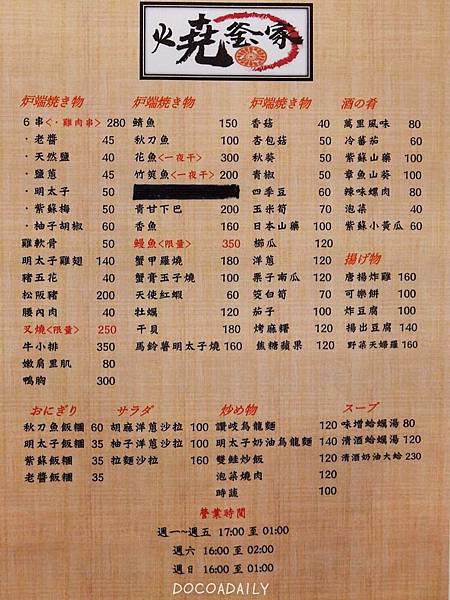 火堯釜家
炉端焼き物
6串<·雞肉串> 280
·老醬 45
·天然鹽 40
·鹽蔥 45
·明太子 50
·紫蘇梅 50
·柚子胡椒 60
雞軟骨 50
明太子雞翅 140
豬五花 40
松阪豬 200
腰內肉 40
叉燒<限量> 250
牛小排 350
嫩肩里肌 80
鴨胸 300
炉端焼き物
鯖魚 150
秋刀魚 100
花魚<一夜干> 300
竹筴魚<一夜干> 200
青甘下巴 200
香魚 160
鰻魚<限量> 350
蟹甲羅燒 180
蟹膏玉子燒 100
天使紅蝦 60
牡蠣 120
干貝 180
馬鈴薯明太子燒 160
炉端焼き物
香菇 40
杏包菇 50
秋葵 50
青椒 50
四季豆 60
玉米筍 70
日本山藥 100
櫛瓜 120
洋蔥 120
栗子南瓜 120
筊白筍 70
茄子 100
烤麻糬 120
焦糖蘋果 120
酒の肴
萬里風味 80
冷蕃茄 60
紫蘇山藥 80
章魚山葵 80
辣味螺肉 80
泡菜 40
紫蘇小黃瓜 60
揚げ物
唐揚炸雞 160
可樂餅 100
炸豆腐 100
揚出豆腐 140
野菜天婦羅 160
おにぎり
秋刀魚飯糰 60
明太子飯糰 35
紫蘇飯糰 35
老醬飯糰 35
サラダ
胡麻洋蔥沙拉 100
柚子洋蔥沙拉 100
拉麵沙拉 160
炒め物
讚岐烏龍麵 120
明太子奶油烏龍麵 140
雙蛙炒飯 120
泡菜燒肉 120
時蔬 100
スープ
味增蛤蠣湯 80
清酒蛤蠣湯 120
清酒奶油大蛤 230
營業時間
週一~週五 17:00 至 01:00
週六 16:00 至 02:00
週日 16:00 至 01:00
DOCOADAILY